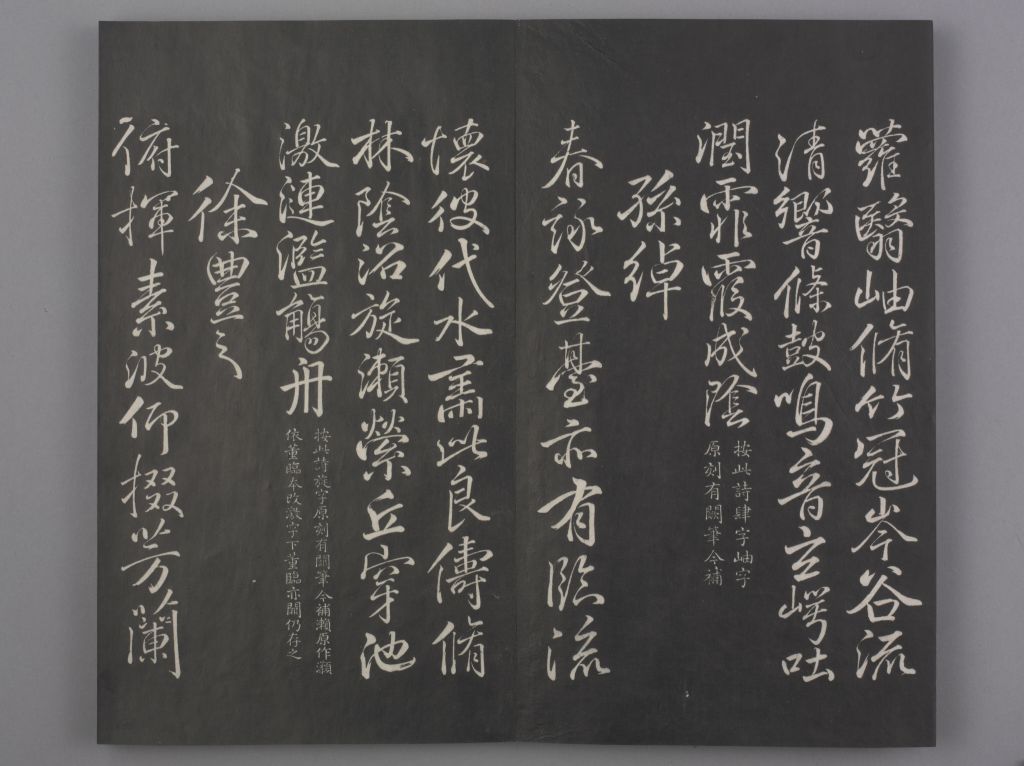 蘿翳岫脩竹冠岑谷流
清響條鼓鳴音玄崿吐
潤霏霧成陰
按此詩肆字岫字
原刻有闕筆今補
孫綽
春詠登臺亦有臨流
懷彼代水肅此良儔脩
林陰沼旋瀨縈丘穿池
激漣濫觴舟
按此詩旋字原刻有闕筆今補瀨原作瀕
依董臨本改激字下董臨亦闕仍存之
徐豐之
俯揮素波仰掇芳蘭